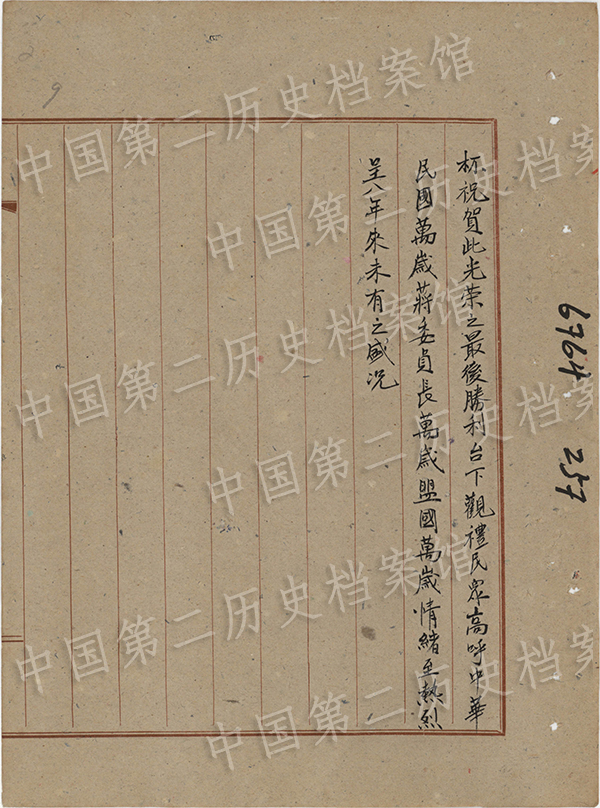 杯祝賀此光荣之最後勝利台下觀禮民眾高呼中華
民國萬歲蔣委員長萬歲盟國萬歲情緒至熱烈
呈八年來未有之盛况
6764 257
9
中国第二历史档案馆
中国第二历史档案馆
中国第二历史档案馆
中国第二历史档案馆
中国第二历史档案馆
中国第二历史档案馆